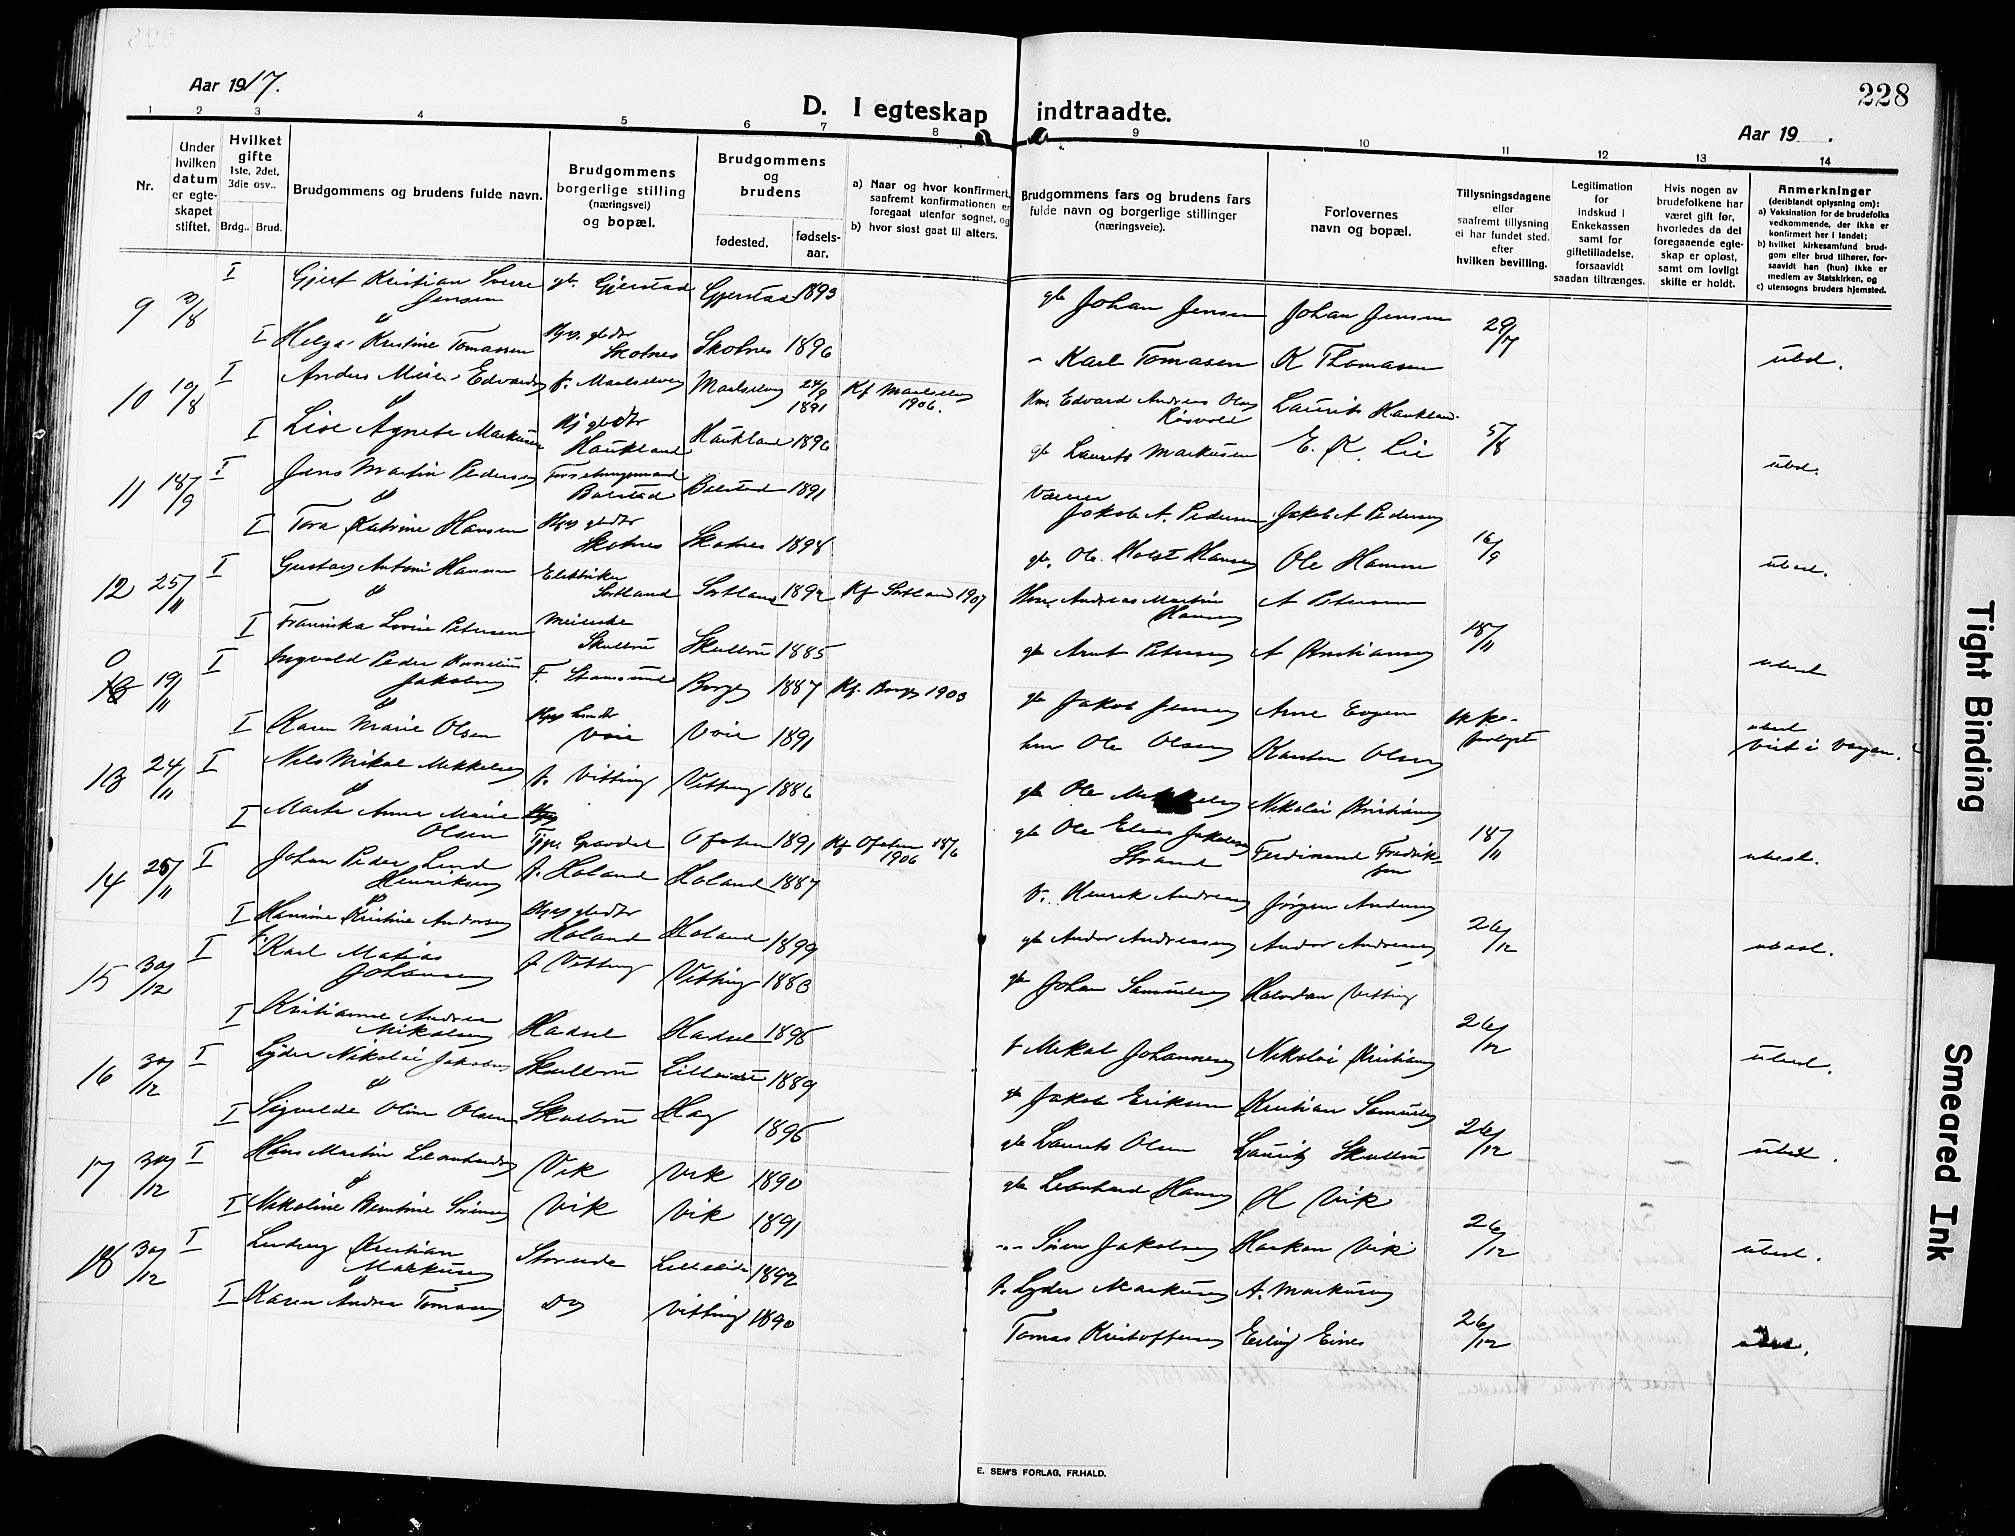 228
Aar 1917.
D. I egteskap indtraadte.
Aar 19 .
1 2 3 4 5 6 7 8 9 10 11 12 13 14
Nr.
Under hvilken datum er egteskapet stiftet.
Hvilket gifte
1ste, 2det, 3die osv..
Brdg.. Brud.
Brudgommens og brudens fulde navn.
Brudgommens borgerlige stilling (næringsvei) og bopæl.
Brudgommens og brudens
fødested. fødsels-aar.
a) Naar og hvor konfirmert, saafremt konfirmationen er foregaat utenfor sognet, og
b) hvor sisst gaat til alters.
Brudgommens fars og brudens fars fulde navn og borgerlige stillinger (næringsveie).
Forlovernes navn og bopæl.
Tillysningsdagene eller saafremt tillysning ei har fundet sted, efter hvilken bevilling.
Legitimation for indskud i Enkekassen samt for giftetilladelse, forsaavidt saadan tiltrænges.
Hvis nogen av brudefolkene har været gift før, hvorledes da det foregaaende egteskap er opløst, samt om lovligt skifte er holdt.
Anmerkninger
(deriblandt oplysning om):
a) Vaksination for de brudefolks vedkommende, der ikke er konfirmert her i landet;
b) hvilket kirkesamfund brudgom eller brud tilhører, forsaavidt han (hun) ikke er medlem av Statskirken, og
c) utensogns bruders hjemsted.
9 I Gjert Kristian Sverre Jensen Gjerstad Gjerstad 1893 Johan Jensen Johan Jensen 29/7
I Helga Kristine Tomassen Skotnes Skotnes 1896 Karl Tomasen K Thomasen ubd.
10 19/8 I Anders Meier Edvardsen Maalselven Maalselv 24/9 1891 Kf Maalselv 1906. Edvard Andreas Olsen Laurits Haukland
I Lise Agnete Markusen Haukland Haukland 1896 Laurits Markusen E. K. Lie 5/8 ubd.
11 18/9 I Jens Martin Pedersen Balstad Balstad 1891 Jakob A. Pedersen Jakob A Pedersen
I Tora Katrine Hansen Skotnes Skotnes 1898 Ole Holst Hansen Ole Hansen 16/9 ubesl.
12 25/11 I Gustav Antoni Hansen Elektriker Sortland Sortland 1892 Kf Sortland 1907 Andreas Martin Hansen A Petersen
I Fransiska Lovise Petersen Meierske Skulbru Skulbru 1885 Arnt Petersen A Kristiansen 18/11 ubesl
0 19/11 I Ingvald Peder Kornelius Jakobsen F. Stamsund Borge 1887 Kf. Borge 1903 Jakob Jensen Arne Evgen
I Karen Marie Olsen Voie Voie 1891 Ole Olsen Karsten Olsen ikke forlyst ubesl viet i Vaagan.
13 24/11 I Nils Mikal Mikkelsen f. Vitting Vitting 1886 Ole Nikolai Kristiansen
I Marte Anna Marie Olsen Gravdal Ofoten 1891 Kf Ofoten 18/6 1906 Ole Elias Jakobsen Strand Ferdinand Fredriksen 18/11 ubesl.
14 25/11 I Johan Peder Lind Henriksen f. Holand Holand 1887 Henrik Andreasen Jørgen Andersen
I Hansine Kristine Andorsen Holand Holand 1899 Andor Andreassen Andor Andreasen 26/12 ubesl.
15 30/12 I Karl Matias Johansen f Vitting Vitting 1883 Johan Samuelsen Halvdan Vitting
I Kristianne Andrea Mikalsen Hadsel Hadsel 1896 f Mikal Johannesen Nikolai Kristiansen 26/12 ubesl.
16 30/12 I Lyder Nikolai Jakobsen Skulbru Lilleeidet 1889 Jakob Eriksen Kristian Samuelsen
I Sigvalda Oline Olsen Skulbru Hag 1896 Laurits Olsen Lauritz Skulbru 26/12 ubesl.
17 30/12 I Hans Martin Leonhardsen Vik Vik 1890 Leonhard Hansen H Vik
I Nikoline Berntine Sørensen Vik Vik 1891 Sören Jakobsen Haakon Vik 26/12 ubesl.
18 30/12 I Ludvig Kristian Markusen Storeide Lilleeide 1892 f. Lyder Markusen A. Markusen
I Karen Andrea Tomasen Do Vitting 1890 Tomas Kristoffersen Erling Eines 26/12
E. SEM'S FORLAG, FR.HALD.
Tight Binding
Smeared Ink